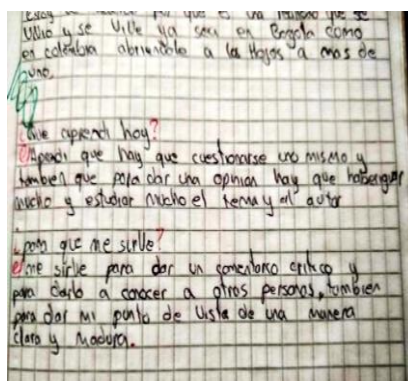 por que es una que se
Vivio y se vive ya sea en Bogota como
en colombia abriendole a los Hojos a mas de
uno.
¿Que aprendi hoy?
Aprendi que hay que cuestionarse uno mismo y
tambien que para dar una opinion hay que haberiguar
mucho y estudiar mucho el tema y al autor
¿para que me sirve?
me sirve para dar un comentario critico y
para darlo a conocer a otros personas, tambien
para dar mi punto de vista de una manera
clara y Madura.